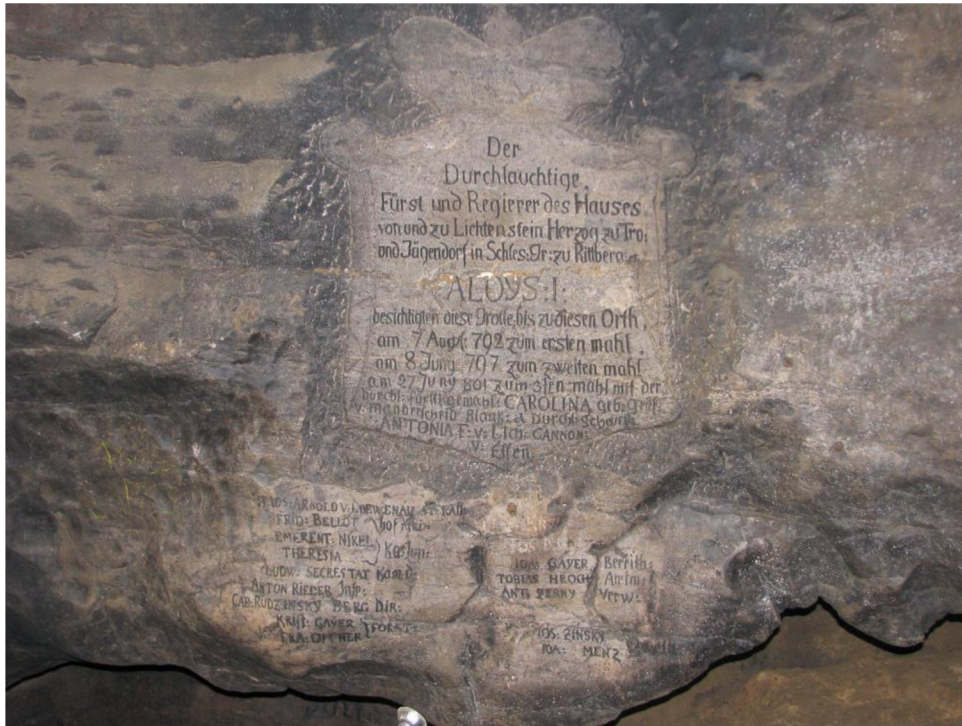 Der
Durchlauchtige
Fürst und Regierer des Hauses
von und zu Lichtenstein Herzog zu Tro:
und Jägendorf in Schles: Gr: zu Rittberg
ALOYS: I:
besichtigten diese Grotte, bis zu diesen Orth,
am 7 Augst: 792 zum ersten mahl
am 8 Juny: 797 zum zweiten mahl
am 27 Juny 801 zum 3ten mahl mit der
durchl: fürstl: gemahl: CAROLINA geb: Gräf:
v: manderscheid Blank: d Durchl:
ANTONIA F: v: Lich: CANNON:
v: Essen
ARNOLD v: LOEWENAU
FRID: BELLOT hof
EMERENT: NIKEL
THERESIA
LUDW: SECRESTAT Kam:D:
ANTON RIEGER Insp:
CAR: RUDZINSKY BERG Dir:
Krist: GAYER FORST:
FRA: OFFNER
IOA: GAYER Bereith:
TOBIAS HROCH Amtm:
ANT: PERNY Verw:
IOS: ZINSKY
IOA: MENZ